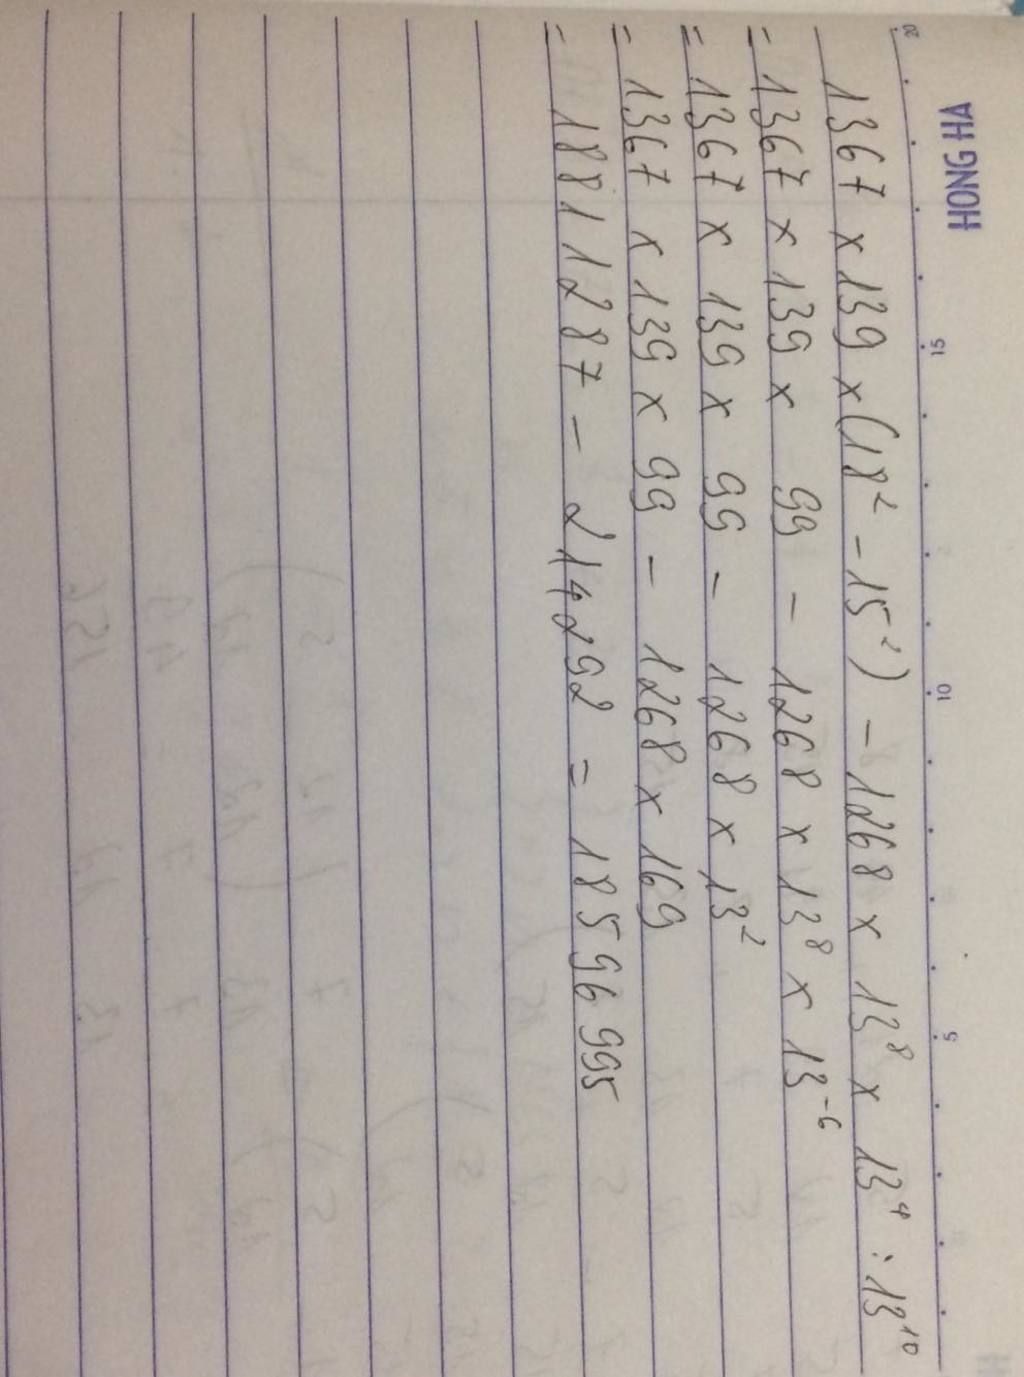 HONG HA
20 15 10 5
1367 x 139 x (18² - 15²) - 1268 x 13⁸ x 13⁴ : 13¹⁰
= 1367 x 139 x 99 - 1268 x 13⁸ x 13⁻⁶
= 1367 x 139 x 99 - 1268 x 13²
= 1367 x 139 x 99 - 1268 x 169
= 18811287 - 214292 = 18596995